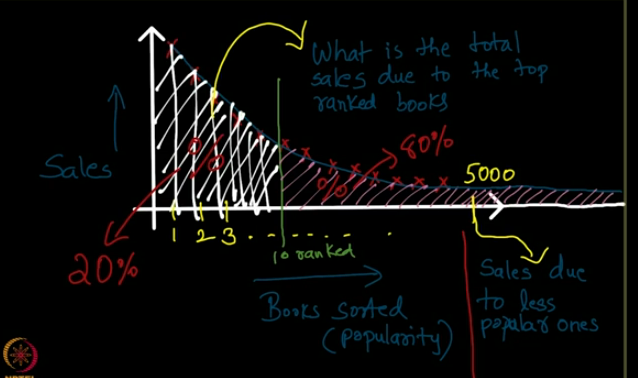 What is the total
sales due to the top
ranked books
Sales
%
%
80%
5000
20%
1 2 3
10 ranked
Books sorted
(popularity)
Sales due
to less
popular ones